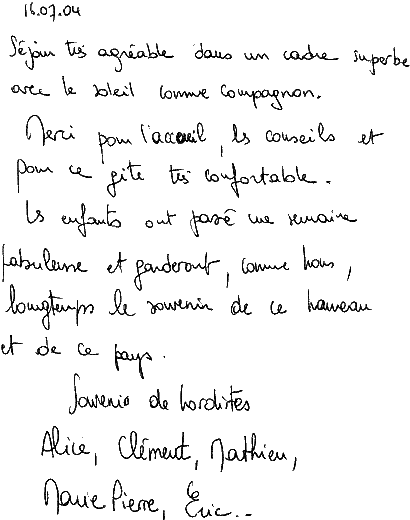 16.07.04
Séjour très agréable dans un cadre superbe
avec le soleil comme compagnon.
Merci pour l'accueil, les conseils et
pour ce gîte très confortable.
Les enfants ont passé une semaine
fabuleuse et garderont, comme nous,
longtemps le souvenir de ce hameau
et de ce pays.
Souvenir de nordistes
Alice, Clément, Mathieu,
Marie Pierre, Éric...